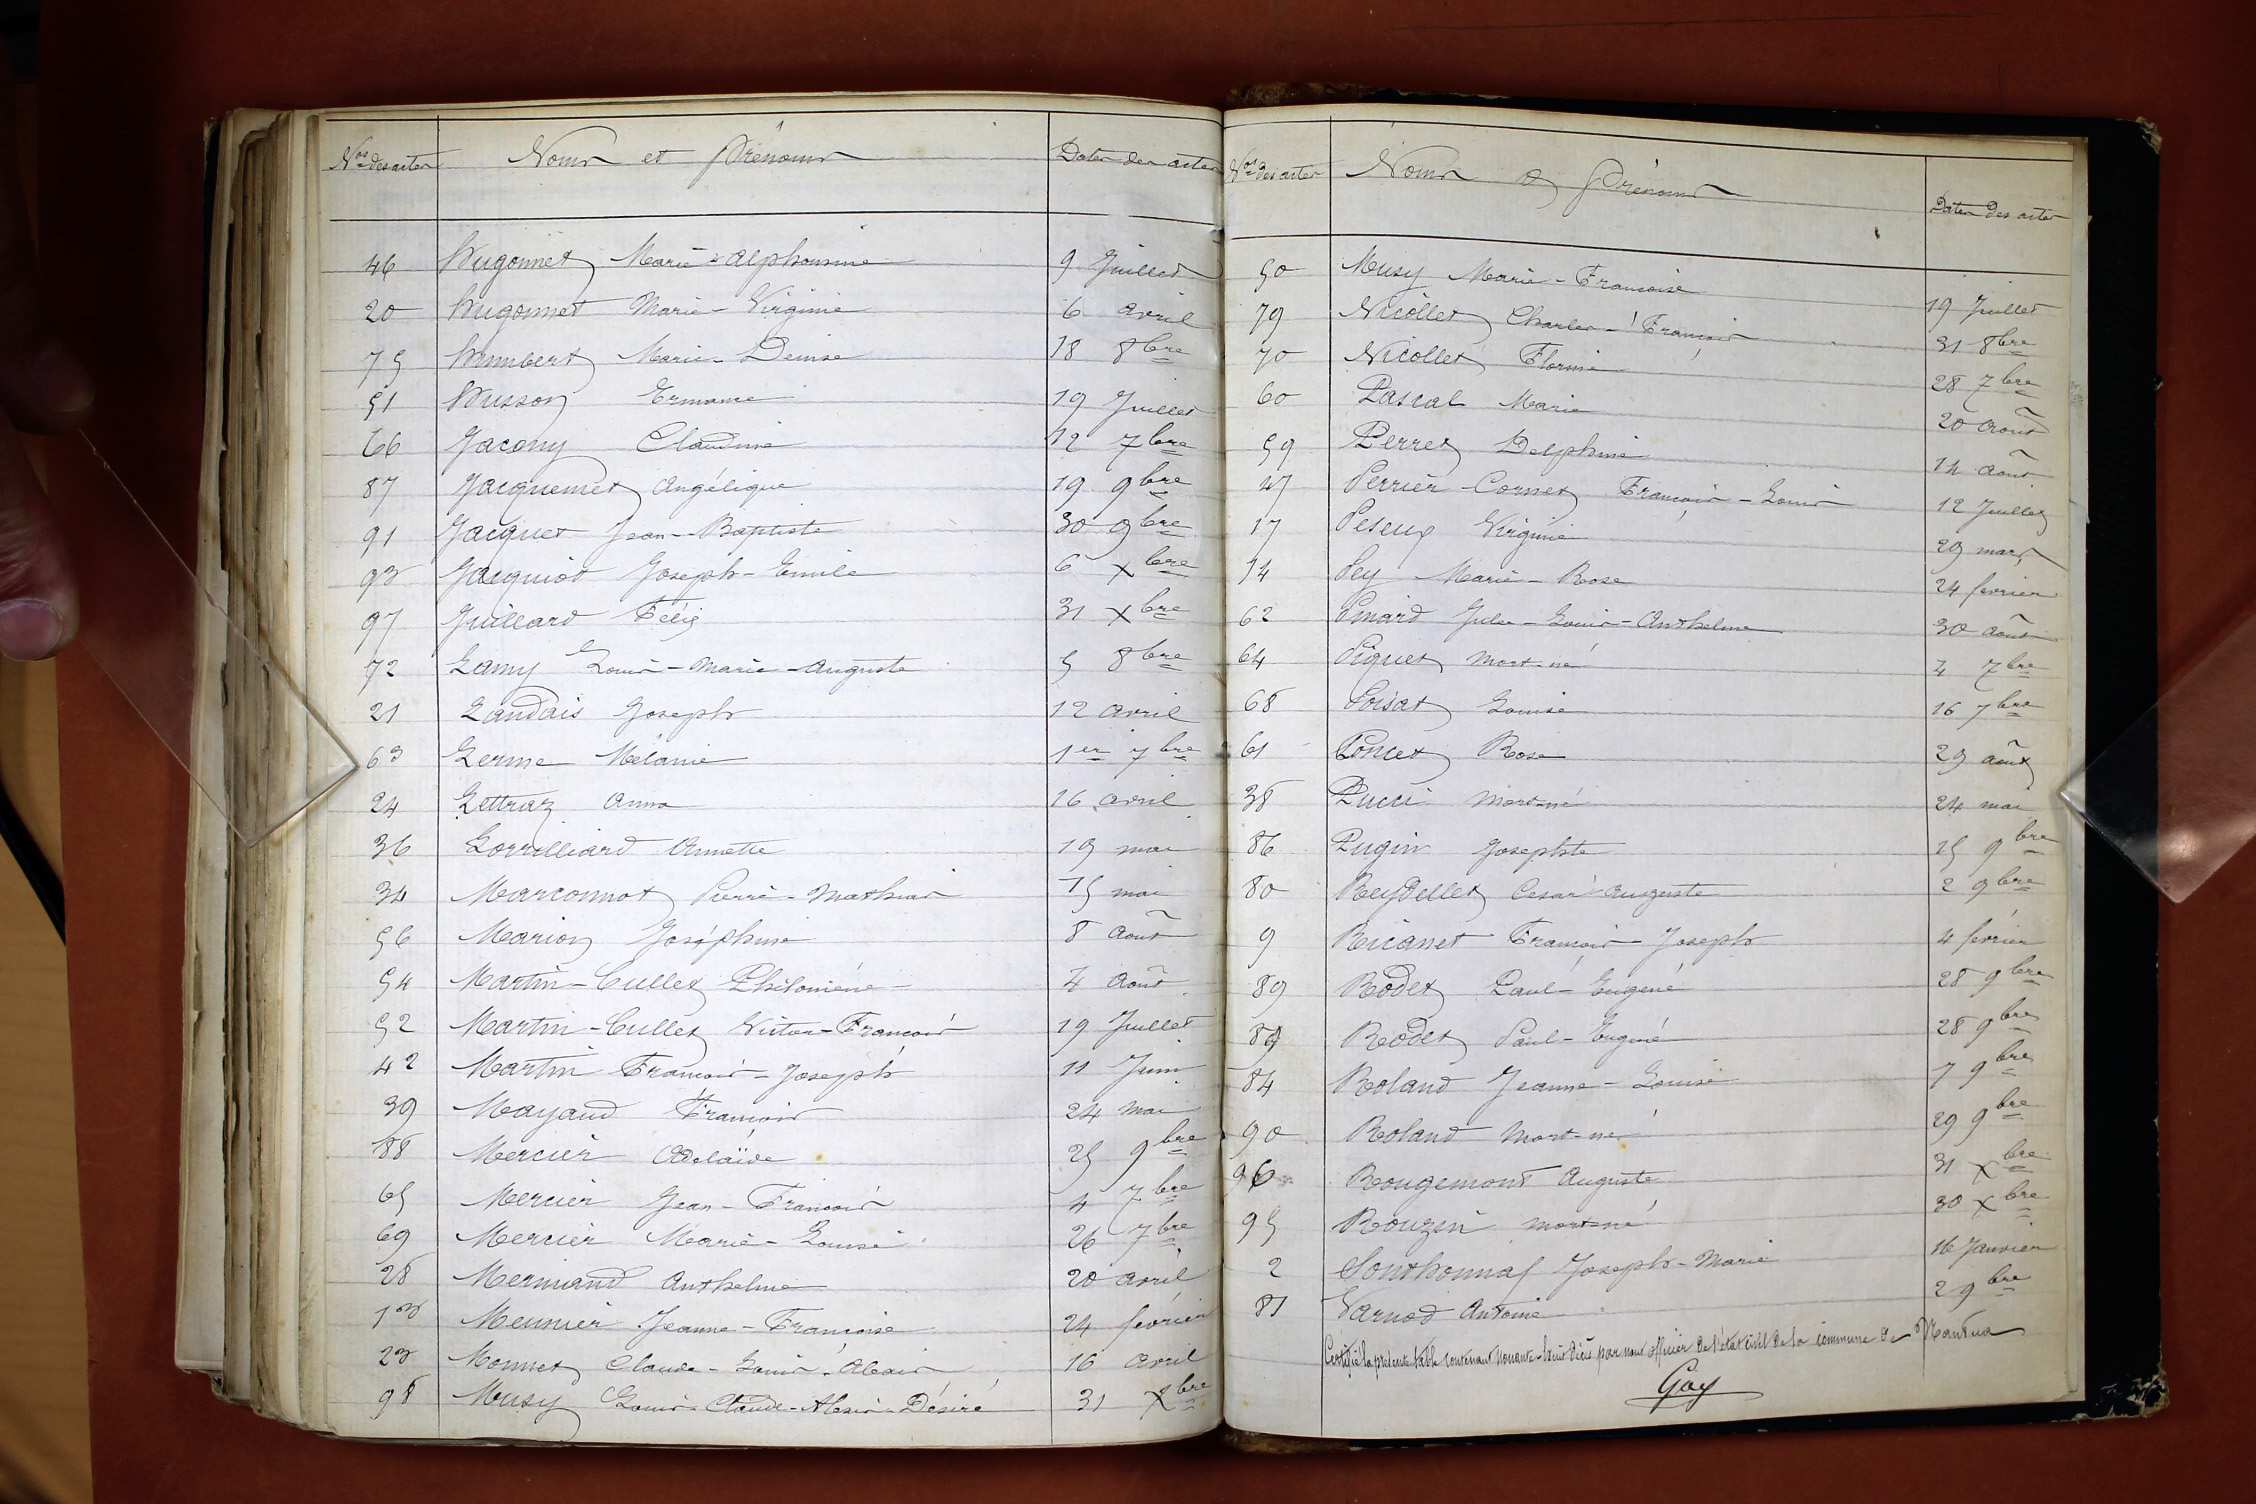 Nos des actes Noms et Prénoms Dates des actes
46 Hugonnet Marie-Alphonsine 9 Juillet
20 Hugonnet Marie-Virginie 6 avril
75 Humbert Marie-Denise 18 8bre
51 Husson Ermance 19 Juillet
66 Jacony Claudine 12 7bre
87 Jacquemet Angélique 19 9bre
91 Jacquet Jean-Baptiste 30 9bre
93 Jacquiot Joseph-Emile 6 Xbre
97 Juillard Félix 31 Xbre
72 Lamy Louis-Marie-Auguste 5 8bre
21 Landais Joseph 12 avril
63 Lerme Mélanie 1er 7bre
24 Lettraz Anna 16 avril
36 Lorrilliard Annette 19 mai
34 Marconnot Pierre-Mathias 15 mai
56 Marion Joséphine 8 Août
54 Martin-Cullet Philomène 4 Août
52 Martin-Cullet Victor-François 19 Juillet
42 Martin François-Joseph 11 Juin
39 Mayaud François 24 mai
88 Mercier Adelaïde 25 9bre
65 Mercier Jean-François 4 7bre
69 Mercier Marie-Louise 26 7bre
28 Mermand Anthelme 20 avril
13 Meunier Jeanne-Françoise 24 février
23 Monnet Claude-Louis-Alexis 16 avril
98 Musy Louis-Claude-Alexis-Désiré 31 Xbre
Nos des actes Noms et Prénoms Dates des actes
50 Musy Marie-Françoise 19 Juillet
79 Nicollet Charles-François 31 8bre
70 Nicollet Florine 28 7bre
60 Pascal Marie 20 Août
59 Perret Delphine 14 août
47 Perrier-Cornet François-Louis 12 Juillet
17 Peseux Virginie 29 mars
14 Pey Marie-Rose 24 février
62 Pinard Jules-Louis-Anthelme 30 août
64 Piquet mort-né 4 7bre
68 Poisat Louise 16 7bre
61 Poncet Rose 29 août
38 Pucci mort-né 24 mai
86 Pugin Josephte 15 9bre
80 Reydellet Cesar-Auguste 2 9bre
9 Ricanet François-Joseph 4 février
89 Rodet Paul-Eugène 28 9bre
89 Rodet Paul-Eugène 28 9bre
84 Roland Jeanne-Louise 7 9bre
90 Roland mort-né 29 9bre
96 Rougemont Auguste 31 Xbre
95 Rouzin mort-né 30 Xbre
2 Sonthonnax Joseph-Marie 16 Janvier
81 Varnod Antoine 2 9bre
Certifié la présente table contenant nonante-huit décès par nous officier de l'état civil de la commune de Nantua
Gay